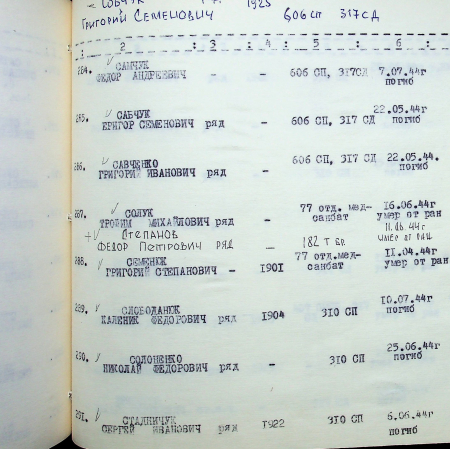 СОБЧУК 1925
ГРИГОРИЙ СЕМЕНОВИЧ 606 СП 317 СД
: 2 : 3 : 4 : 5 : 6 :
284. САВЧУК
ФЕДОР АНДРЕЕВИЧ - - 606 СП, 317СД 7.07.44г
погиб
285. САБЧУК 22.05.44г
ЕРИГОР СЕМЕНОВИЧ ряд - 606 СП, 317 СД погиб
286. САВЧЕНКО 606 СП, 317 СД 22.05.44.
ГРИГОРИЙ ИВАНОВИЧ ряд - погиб
287. СОЛУК 77 отд. мед- 16.06.44г
ТРОФИМ МИХАЙЛОВИЧ ряд - санбат умер от ран
+ СТЕПАНОВ 11.06.44г
ФЕДОР ПЕТРОВИЧ РЯД - 182 Т БР. УМЕР ОТ РАН
288. СЕМЕНЮК 77 отд.мед- 11.04.44г
ГРИГОРИЙ СТЕПАНОВИЧ - 1901 санбат умер от ран
289. СЛОБОДАНЮК 10.07.44г
КАЛЕНИК ФЕДОРОВИЧ ряд 1904 310 СП погиб
290. СОЛОНЕНКО 25.06.44г
НИКОЛАЙ ФЕДОРОВИЧ ряд - 310 СП погиб
291. СТАЛНИЧУК 6.06.44г
СЕРГЕЙ ИВАНОВИЧ ряд 1922 310 СП погиб